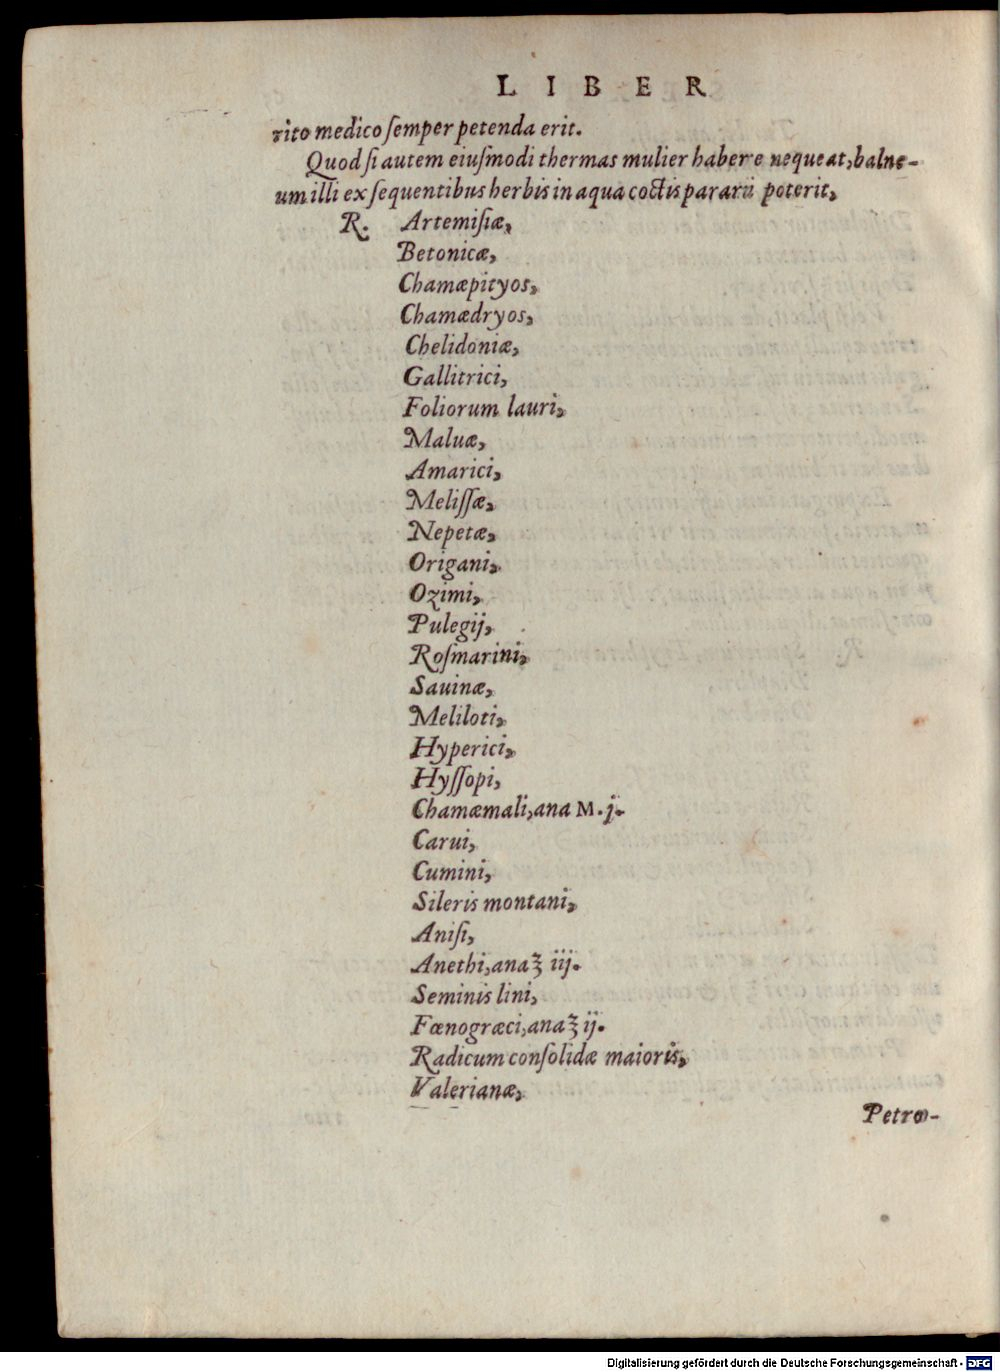 LIBER
rito medico ſemper petenda erit.
Quod ſi autem eiuſmodi thermas mulier habere nequeat, balne-
um illi ex ſequentibus herbis in aqua coctis pararii poterit,
R. Artemiſiæ,
Betonicæ,
Chamæpityos,
Chamædryos,
Chelidoniæ,
Gallitrici,
Foliorum lauri,
Maluæ,
Amarici,
Meliſſæ,
Nepetæ,
Origani,
Ozimi,
Pulegij,
Roſmarini,
Sauinæ,
Meliloti,
Hyperici,
Hyſſopi,
Chamæmali, ana M. j.
Carui,
Cumini,
Sileris montani,
Aniſi,
Anethi, ana ℥ iij.
Seminis lini,
Fœnogræci, ana ℥ ij.
Radicum conſolidæ maioris,
Valerianæ,
Petro-
Digitalisierung gefördert durch die Deutsche Forschungsgemeinschaft - DFG